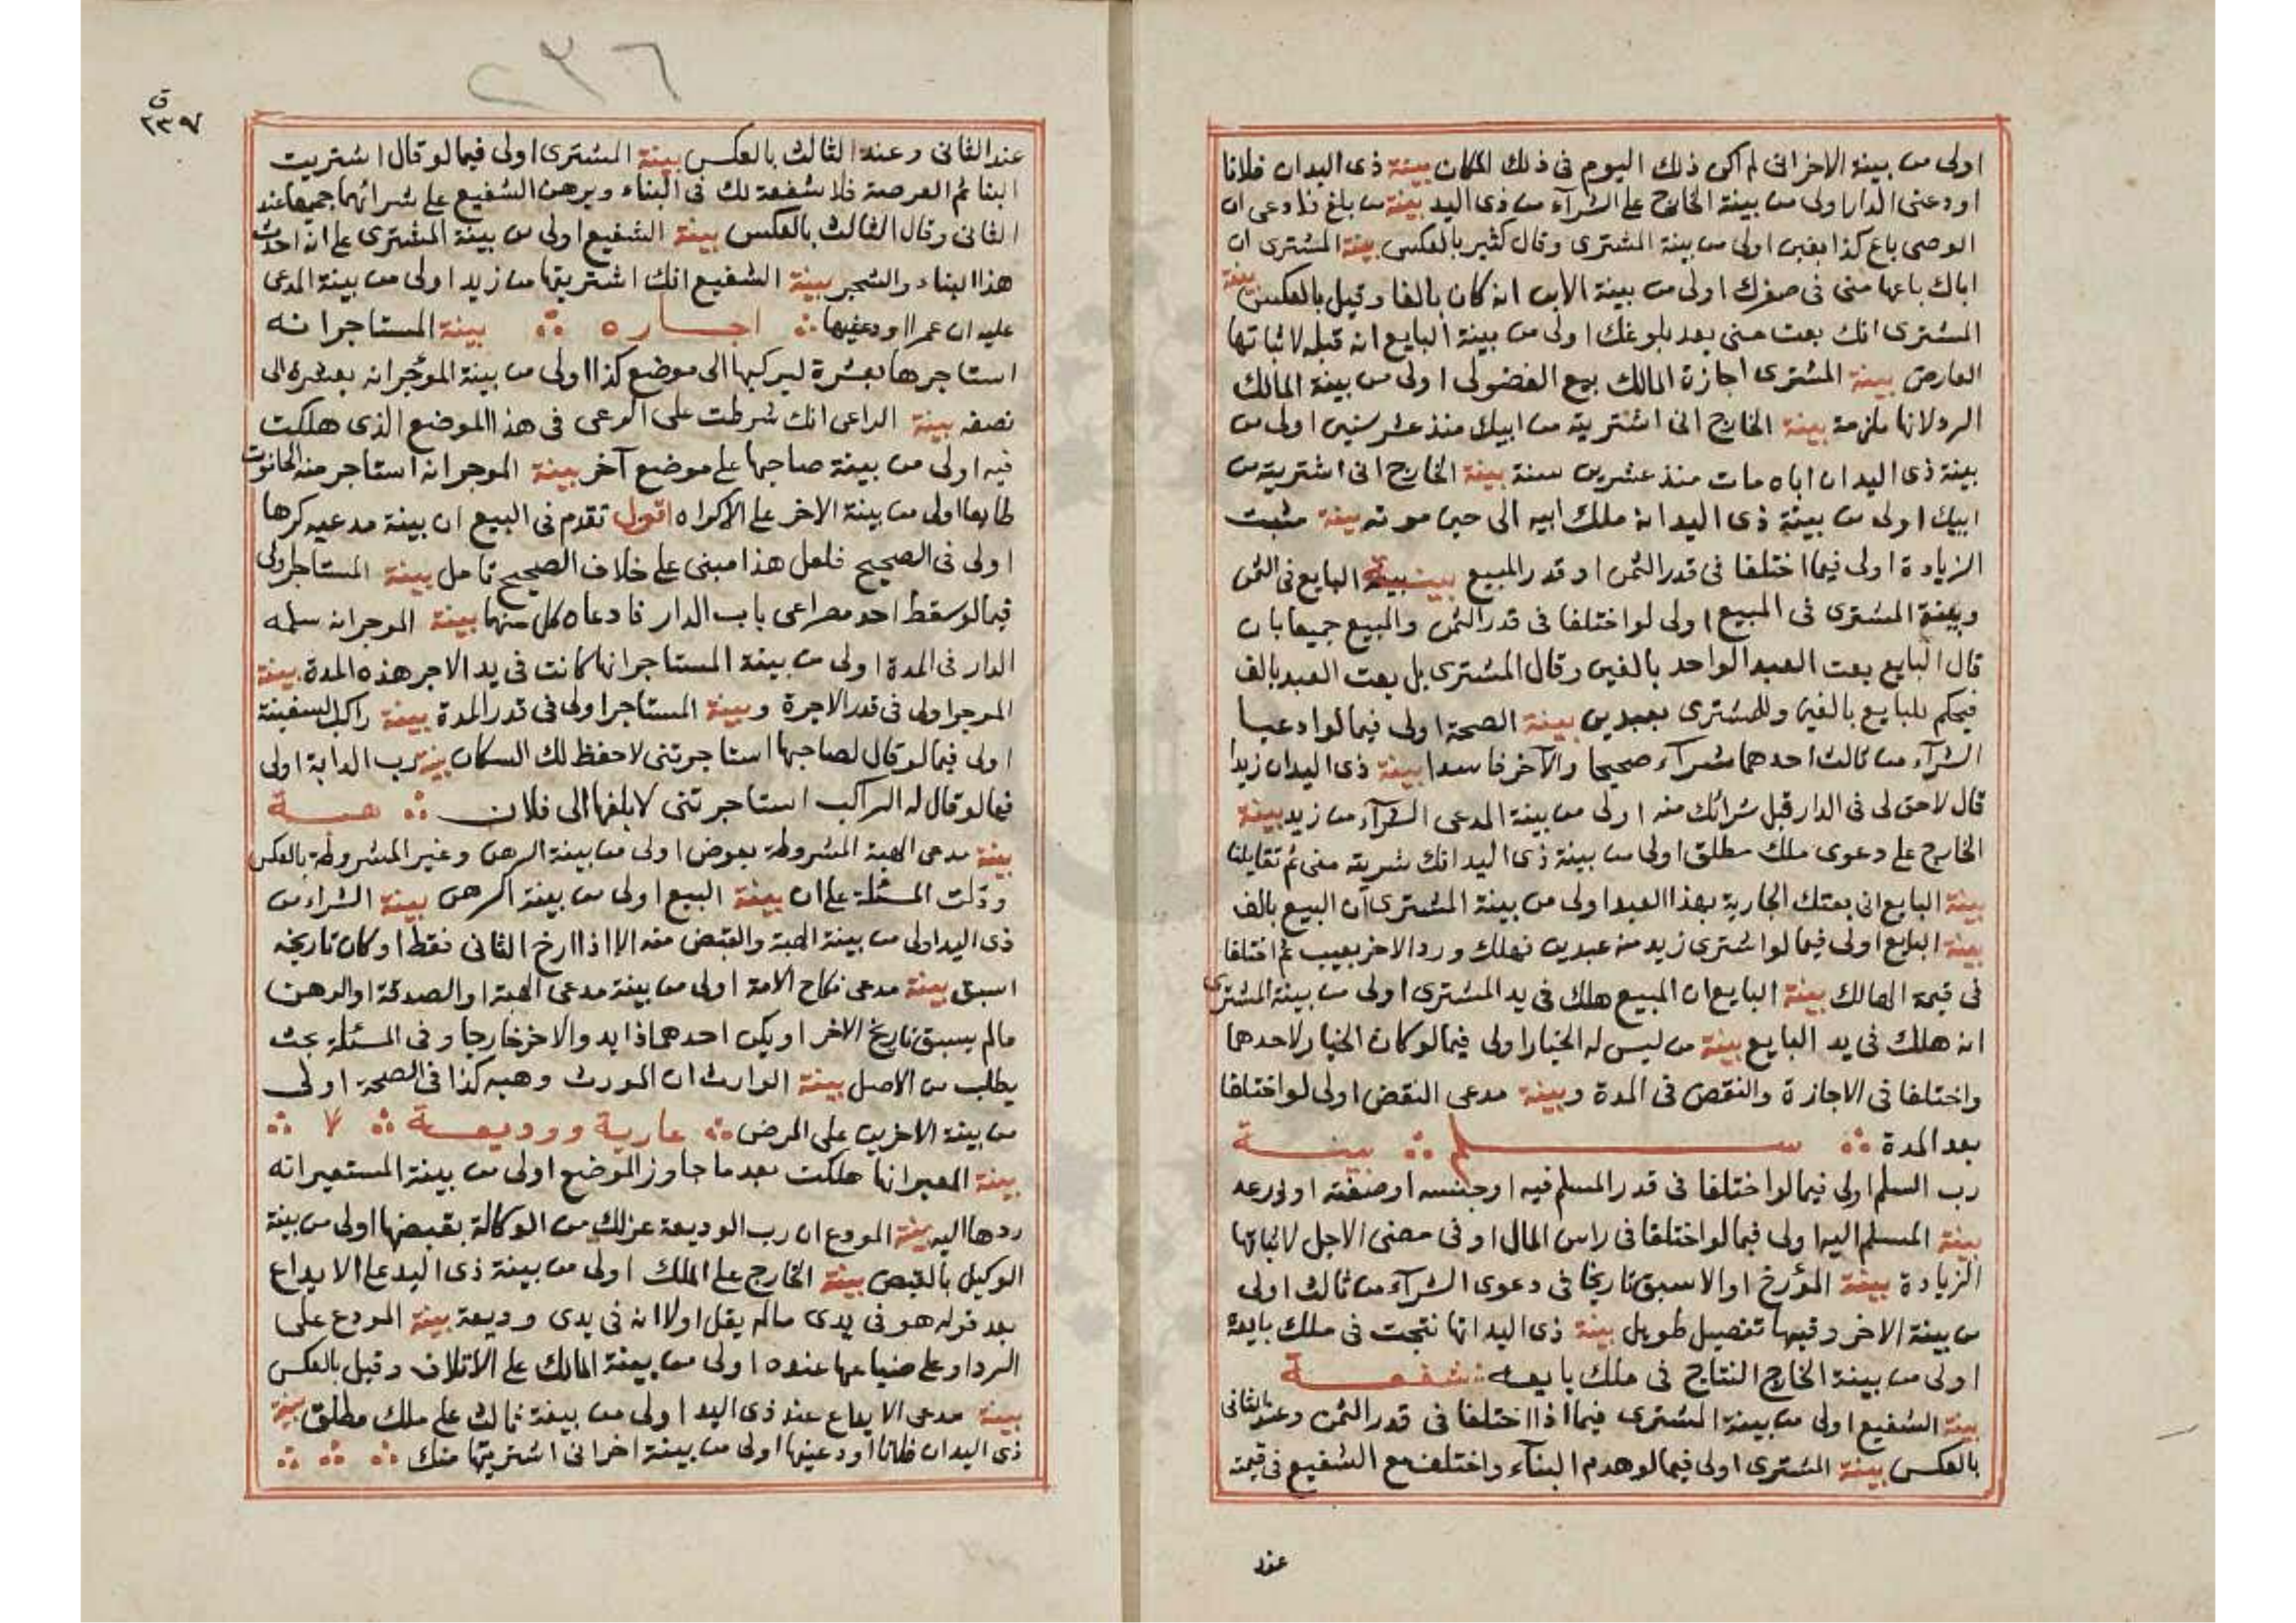 اولى من بينة الاخر انى لم اكن ذلك اليوم فى ذلك المكان بينة ذى اليد ان فلانا
اودعنى الدار اولى من بينة الخارج على الشرآء من ذى اليد بينة من بلغ فادعى ان
الوصى باع كذا بغبن اولى من بينة المشترى وقال كثير بالعكس بينة المشترى ان
اباك باعها منى فى صغرك اولى من بينة الابن انه كان بالغا وقيل بالعكس بينة
المشترى انك بعت منى بعد بلوغك اولى من بينة البايع انه قبله لاثباتها
العارض بينة المشترى اجازة المالك بيع الفضولى اولى من بينة المالك
الرد لانها ملزمة بينة الخارج انى اشتريته من ابيك منذ عشر سنين اولى من
بينة ذى اليد ان اباه مات منذ عشرين سنة بينة الخارج انى اشتريته من
ابيك اولى من بينة ذى اليد انه ملك ابيه الى حين موته بينة مثبت
الزيادة اولى فيما اختلفا فى قدر الثمن او قدر المبيع بينة البايع فى الثمن
وبينة المشترى فى المبيع اولى لو اختلفا فى قدر الثمن والمبيع جميعا بان
قال البايع بعت العبد الواحد بالفين وقال المشترى بل بعت العبد بالف
فيحكم للبايع بالفين وللمشترى بعبدين بينة الصحة اولى فيما لو ادعيا
الشرآء من ثالث احدهما شرآء صحيحا والآخر فاسدا بينة ذى اليد ان زيدا
قال لاحق لى فى الدار قبل شرائك منه اولى من بينة المدعى الشرآء من زيد بينة
الخارج على دعوى ملك مطلق اولى من بينة ذى اليد انك شريته منى ثم تقايلنا
بينة البايع انى بعتك الجارية بهذا العبد اولى من بينة المشترى ان البيع بالف
بينة البايع اولى فيما لو اشترى زيد منه عبدين فهلك ورد الاخر بعيب ثم اختلفا
فى قيمة الهالك بينة البايع ان المبيع هلك فى يد المشترى اولى من بينة المشترى
انه هلك فى يد البايع بينة من ليس له الخيار اولى فيما لو كان الخيار لاحدهما
واختلفا فى الاجازة والنقض فى المدة وبينة مدعى النقض اولى لو اختلفا
بعد المدة ∴ سلم ∴ بينة
رب السلم اولى فيما لو اختلفا فى قدر المسلم فيه او جنسه او صفته او ذرعه
بينة المسلم اليه اولى فيما لو اختلفا فى راس المال او فى مضى الاجل لاثباتها
الزيادة بينة المؤرخ او الاسبق تاريخا فى دعوى الشرآء من ثالث اولى
من بينة الاخر وفيها تفصيل طويل بينة ذى اليد انها نتجت فى ملك بايعه
اولى من بينة الخارج النتاج فى ملك بايعه ∴ شفعة
بينة الشفيع اولى من بينة المشترى فيما اذا اختلفا فى قدر الثمن وعند الثانى
بالعكس بينة المشترى اولى فيما لو هدم البنآء واختلف مع الشفيع فى قيمته
عند
٢٣٦
ق
٢٣٧
عند الثانى وعند الثالث بالعكس بينة المشترى اولى فيما لو قال اشتريت
البنا ثم العرصة فلا شفعة لك فى البناء وبرهن الشفيع على شرائهما جميعا عند
الثانى وقال الثالث بالعكس بينة الشفيع اولى من بينة المشترى على انه احدث
هذا البناء والشجر بينة الشفيع انك اشتريتها من زيد اولى من بينة المدعى
عليه ان عمرا اودعنيها ∴ اجاره ∴ بينة المستاجر انه
استاجرها بعشرة ليركبها الى موضع كذا اولى من بينة الموجر انه بعشره الى
نصفه بينة الراعى انك شرطت على الرعى فى هذا الموضع الذى هلكت
فيه اولى من بينة صاحبها على موضع آخر بينة الموجر انه استاجر منه الحانوت
طايعا اولى من بينة الاخر على الاكراه اقول تقدم فى البيع ان بينة مدعيه كرها
اولى فى الصحيح فلعل هذا مبنى على خلاف الصحيح تامل بينة المستاجر اولى
فيما لو سقط احد مصراعى باب الدار فادعاه كل منهما بينة الموجر انه سلمه
الدار فى المدة اولى من بينة المستاجر انها كانت فى يد الاجر هذه المدة بينة
الموجر اولى فى قدر الاجرة وبينة المستاجر اولى فى قدر المدة بينة راكب السفينة
اولى فيما لو قال لصاحبها استاجرتنى لاحفظ لك السكان بينة رب الدابة اولى
فيما لو قال له الراكب استاجرتنى لابلغها الى فلان ∴ هبة
بينة مدعى الهبة المشروطة بعوض اولى من بينة الرهن وغير المشروطة بالعكس
ودلت المسئلة على ان بينة البيع اولى من بينة الرهن بينة الشراء من
ذى اليد اولى من بينة الهبة والقبض منه الا اذا ارخ الثانى فقط او كان تاريخه
اسبق بينة مدعى نكاح الامة اولى من بينة مدعى الهبة او الصدقة او الرهن
مالم يسبق تاريخ الاخر او يكن احدهما ذا يد والاخر خارجا وفى المسئلة بحث
يطلب من الاصل بينة الوارث ان المورث وهبه كذا فى الصحة اولى
من بينة الاخرين على المرض ∴ عارية ووديعة ∴ ٧ ∴
بينة المعير انها هلكت بعد ما جاوز الموضع اولى من بينة المستعير انه
ردها اليه بينة المودع ان رب الوديعة عزلك من الوكالة بقبضها اولى من بينة
الوكيل بالقبض بينة الخارج على الملك اولى من بينة ذى اليد على الايداع
بعد قوله هو فى يدى مالم يقل اولا انه فى يدى وديعة بينة المودع على
الرد او على ضياعها عنده اولى من بينة المالك على الاتلاف وقيل بالعكس
بينة مدعى الايداع عند ذى اليد اولى من بينة ثالث على ملك مطلق بينة
ذى اليد ان فلانا اودعنيها اولى من بينة اخر انى اشتريتها منك ∴ ∴ ∴